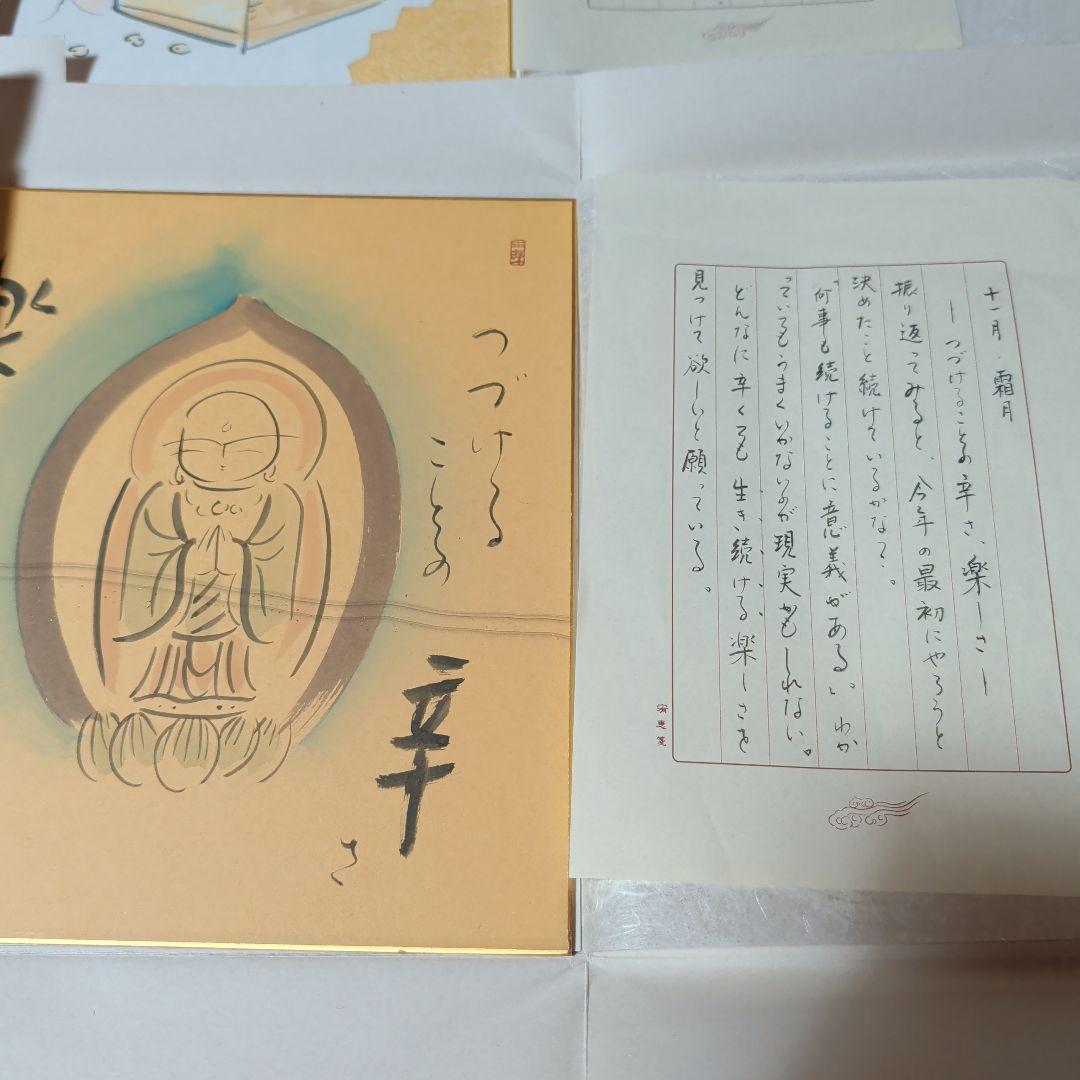 つづける
ことの
辛
さ
楽
十一月・霜月
―つづけることの辛さ、楽しさ―
振り返ってみると、今年の最初にやろうと
決めたこと続けているかな？。
“何事も続けることに意義がある”。わか
っていてもうまくいかないのが現実かもしれない。
どんなに辛くても生き続ける楽しさを
見つけて欲しいと願っている。